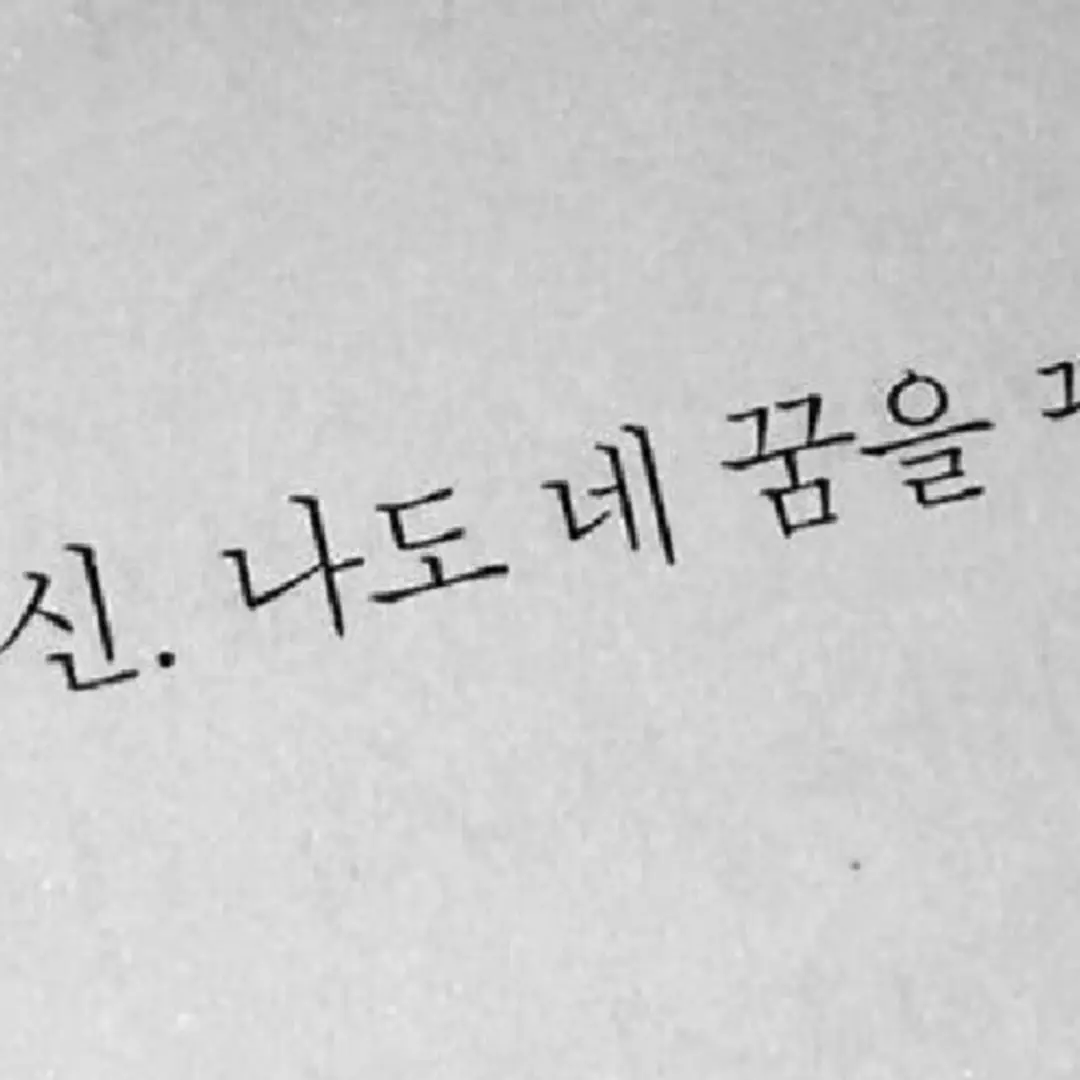 신. 나도 네 꿈을